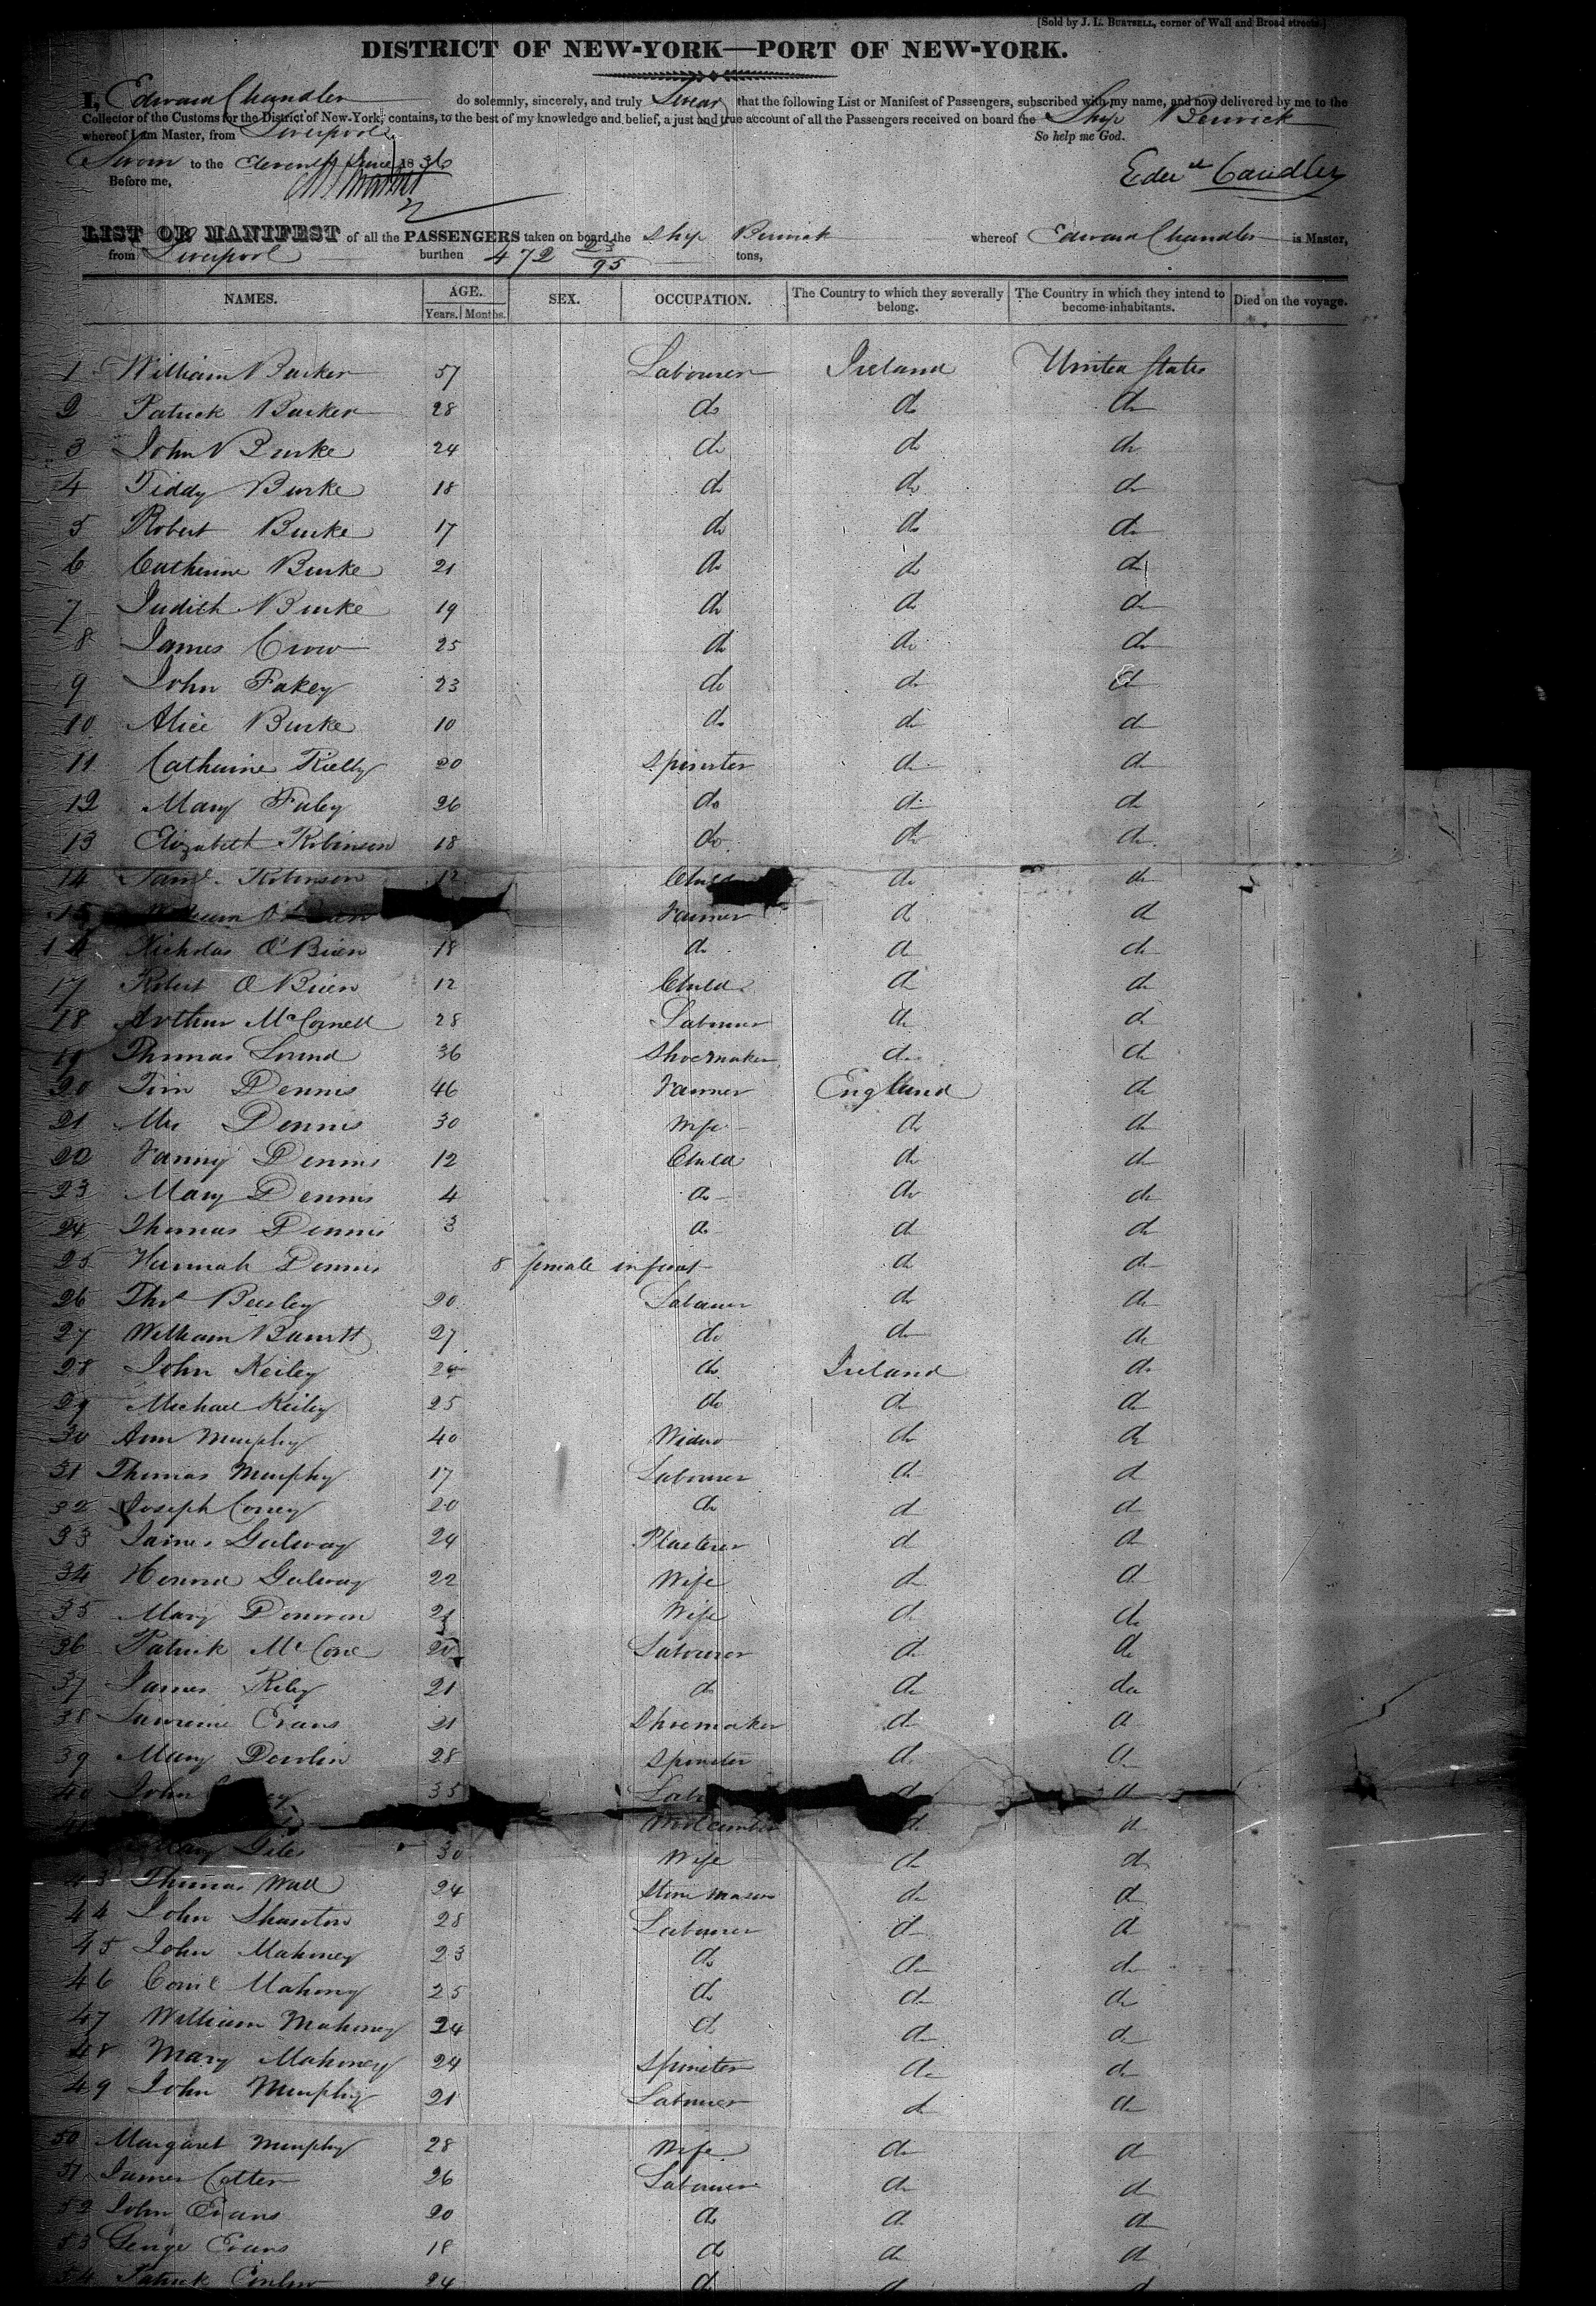 [Sold by J. L. BURTSELL, corner of Wall and Broad streets.]
DISTRICT OF NEW-YORK—PORT OF NEW-YORK.
I, Edward Chandler do solemnly, sincerely, and truly Swear that the following List or Manifest of Passengers, subscribed with my name, and now delivered by me to the
Collector of the Customs for the District of New-York, contains, to the best of my knowledge and belief, a just and true account of all the Passengers received on board the Ship Berwick
whereof I am Master, from Liverpool So help me God.
Sworn to the Eleventh June 1836
Before me,
LIST OR MANIFEST of all the PASSENGERS taken on board the Ship Berwick whereof Edward Chandler is Master,
from Liverpool burthen 472 23/95 tons,
NAMES. AGE. SEX. OCCUPATION. The Country to which they severally belong. The Country in which they intend to become inhabitants. Died on the voyage.
Years. Months.
1 William Barker 57 Labourer Ireland United States
2 Patrick Barker 28 do do do
3 John Burke 24 do do do
4 Tiddy Burke 18 do do do
5 Robert Burke 17 do do do
6 Catherine Burke 21 do do do
7 Judith Burke 19 do do do
8 James Crow 25 do do do
9 John Fakey 23 do do do
10 Alice Burke 10 do do do
11 Catherine Rielly 20 Spinster do do
12 Mary Faley 26 do do do
13 Elizabeth Robinson 18 do do do
14 Robinson 12 Child do do
15 Farmer do do
Nicholas O'Brien 18 do do do
17 Robert O'Brien 12 Child do do
18 Arthur McConnell 28 Labourer do do
19 Thomas Lound 36 Shoemaker do do
20 Tim Dennis 46 Farmer England do
21 Mrs Dennis 30 Wife do do
22 Fanny Dennis 12 Child do do
23 Mary Dennis 4 do do do
24 Thomas Dennis 3 do do do
25 Hannah Dennis 8 female infant do do
26 Thos Beesley 20 Labourer do do
27 William Barrett 27 do do do
28 John Keiley 24 do Ireland do
29 Michael Keiley 25 do do do
30 Ann Murphy 40 Widow do do
31 Thomas Murphy 17 Labourer do do
32 Joseph Correy 20 do do do
33 James Galway 24 Plasterer do do
34 Honora Galway 22 Wife do do
35 Mary Donovon 21 Wife do do
36 Patrick McCone 20 Labourer do do
37 James Riley 21 do do do
38 Lawrence Evans 21 Shoemaker do do
39 Mary Dowlin 28 Spinster do do
40 John 35 do do
Woolcomber do do
Mary Giles 30 Wife do do
43 Thomas Wall 24 Stone Mason do do
44 John Shanton 28 Labourer do do
45 John Mahoney 23 do do do
46 Mahony 25 do do do
47 William Mahoney 24 do do do
48 Mary Mahoney 24 Spinster do do
49 John Murphy 21 Labourer do do
50 Margaret Murphy 28 Wife do do
51 James Cotter 26 Labourer do do
52 John Evans 20 do do do
53 George Evans 18 do do do
54 Patrick 24 do do do